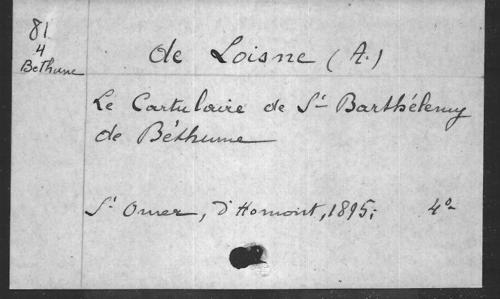 81
4
Béthune
de Loisne (A.)
Le Cartulaire de St Barthélemy
de Béthune
St Omer, d'Homont, 1895; 4o